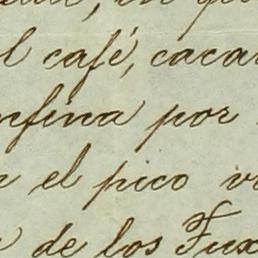 l café, caca
nfina por
el pico v
de los Fux